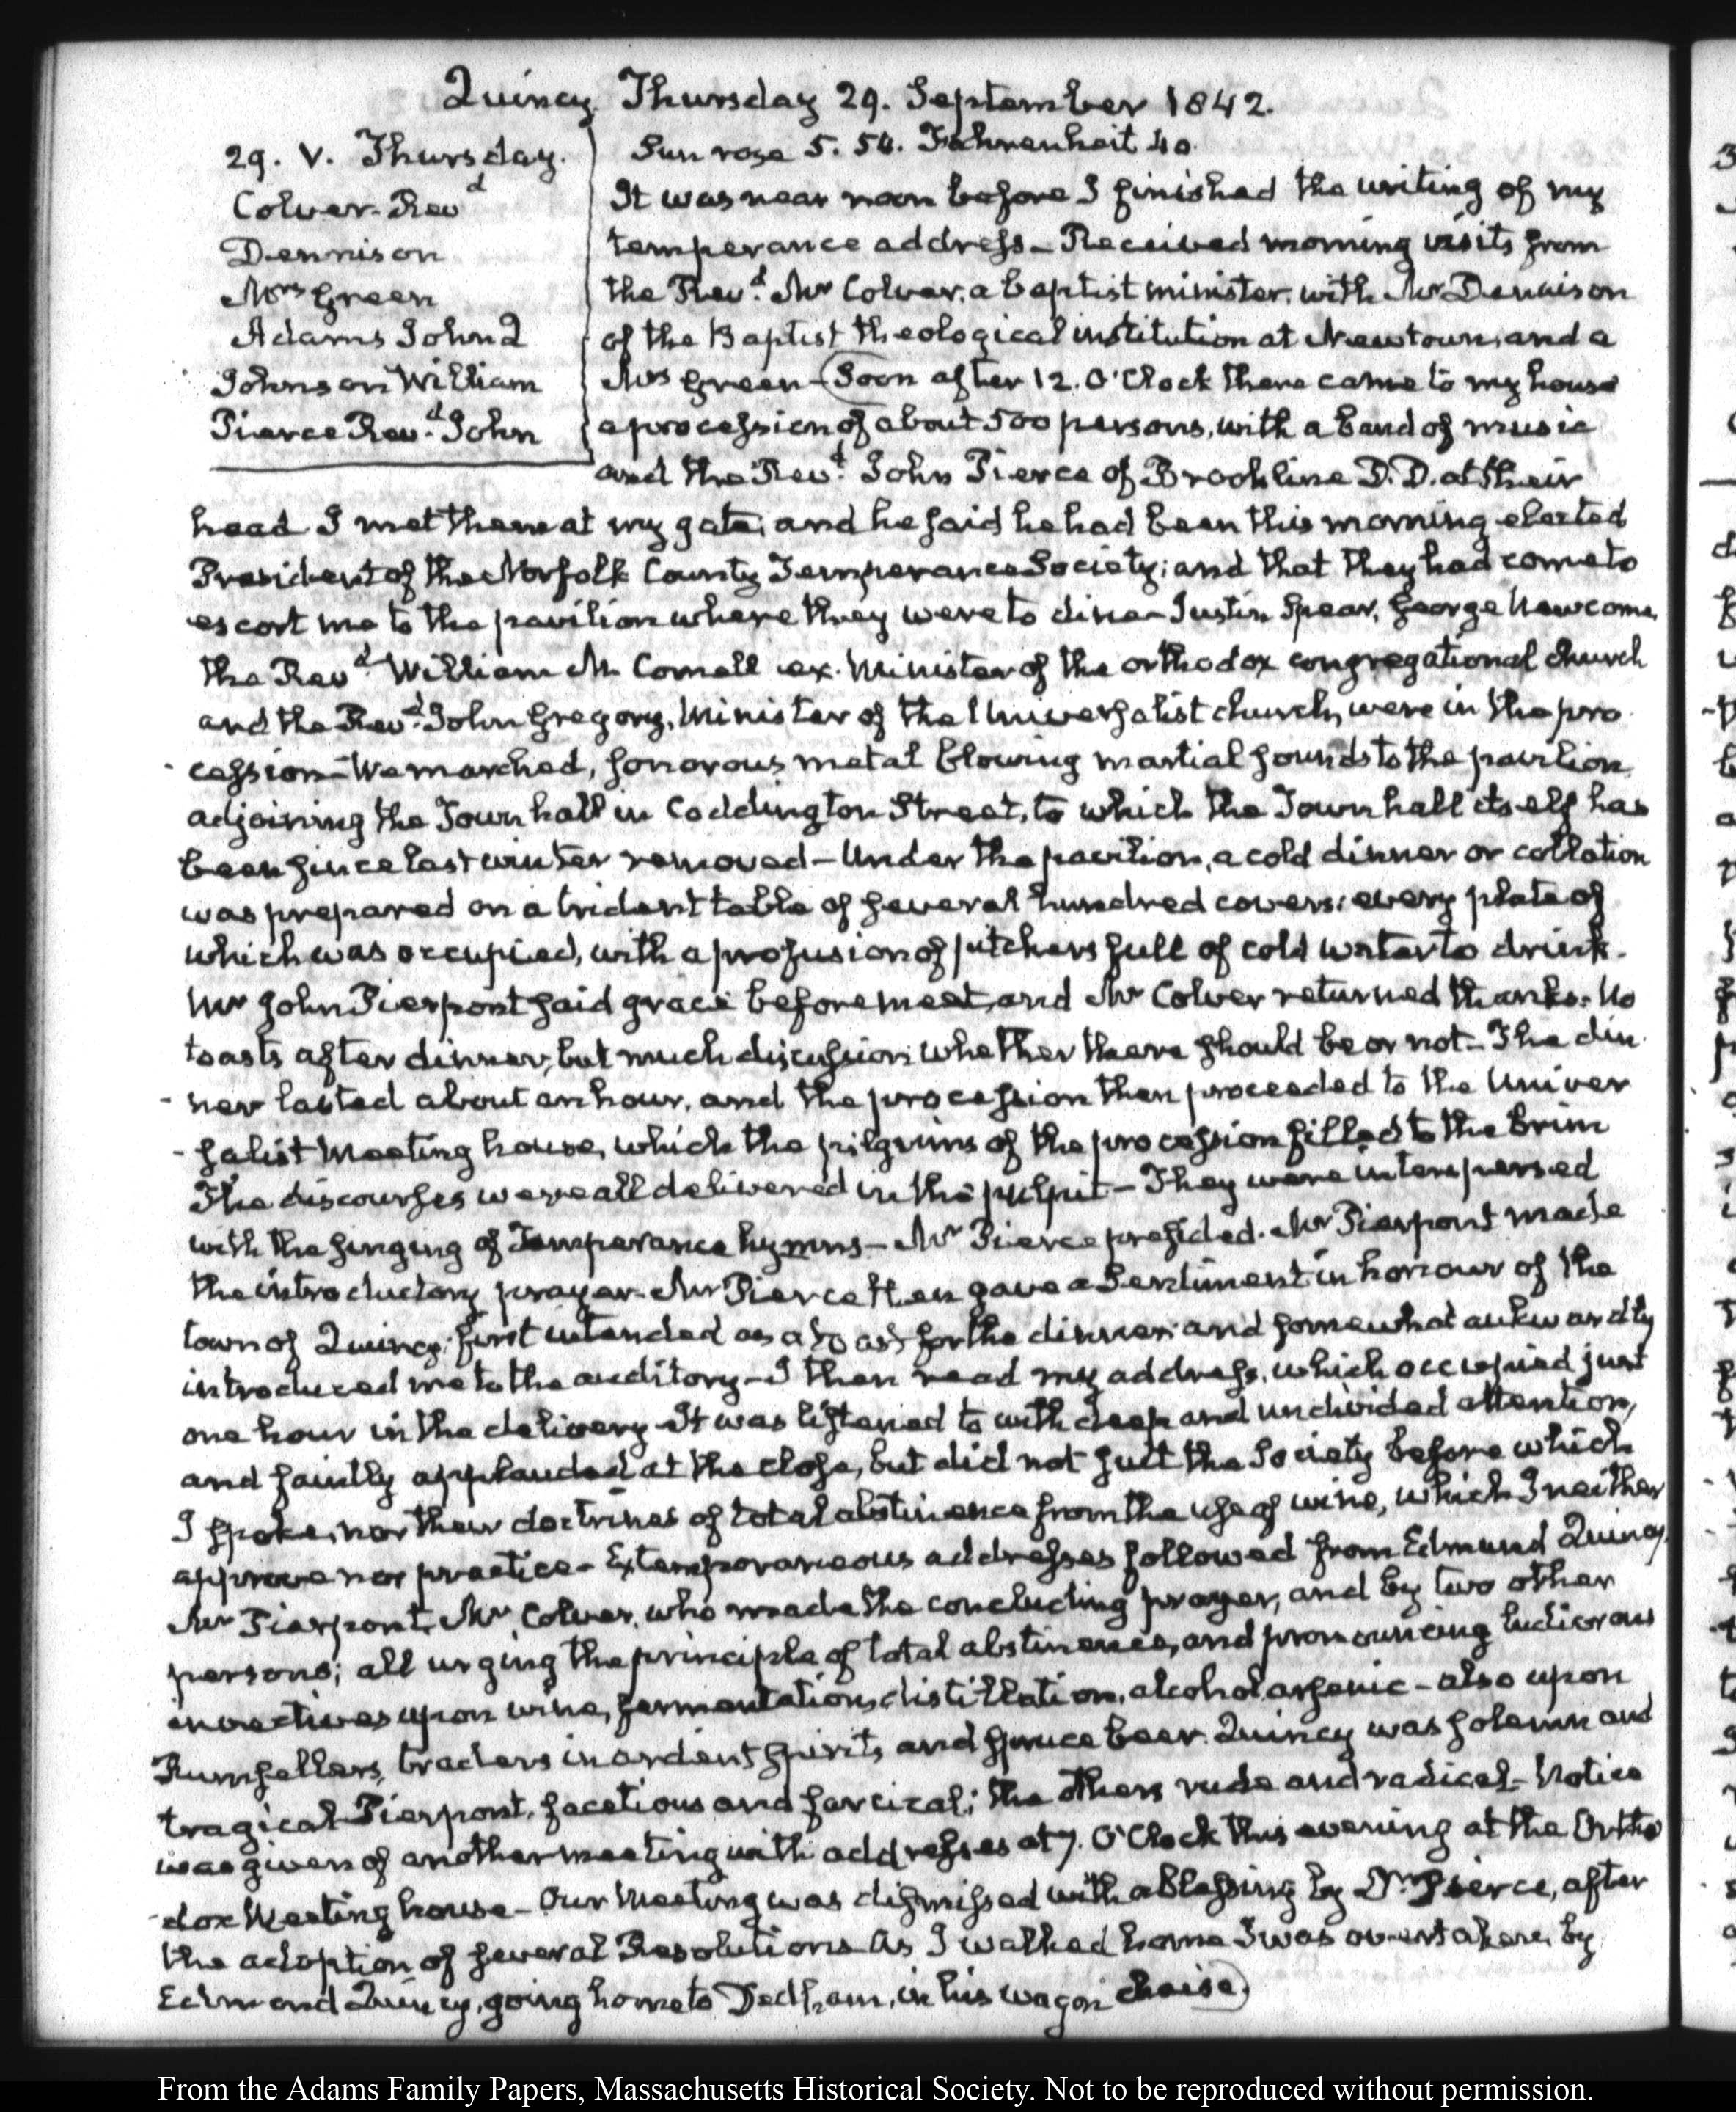 Quincy Thursday 29. September 1842.
29. V. Thursday.
Colver Revd
Dennison
Mrs Green
Adams John 2
Johnson William
Pierce Revd. John
Sun rose 5. 56. Fahrenheit 40.
It was near noon before I finished the writing of my
temperance address — Received morning visits from
the Revd. Mr Colver, a baptist minister, with Mr Dennison
of the Baptist theological institution at Newtown, and a
Mrs Green — (Soon after 12. O'Clock there came to my house
a procession of about 500 persons, with a band of music
and the Revd. John Pierce of Brookline D.D. at their
head I met them at my gate, and he said he had been this morning elected
President of the Norfolk County Temperance Society; and that they had come to
escort me to the pavilion where they were to dine — Justin Spear, George Newcome,
the Revd. William M. Cornell ex. Minister of the orthodox congregational church
and the Revd. John Gregory, Minister of the Universalist church, were in the pro
-cession — We marched, sonorous metal blowing martial sounds to the pavilion
adjoining the Town hall in Coddington Street, to which the Town hall itself has
been since last winter removed — Under the pavilion, a cold dinner or collation
was prepared on a trident table of several hundred covers: every plate of
which was occupied, with a profusion of pitchers full of cold water to drink.
Mr John Pierpont said grace before meat, and Mr Colver returned thanks. No
toasts after dinner, but much discussion whether there should be or not — The din
-ner lasted about an hour, and the procession then proceeded to the Univer
-salist Meeting house, which the pilgrims of the procession filled to the brim
The discourses were all delivered in the pulpit — They were interspersed
with the singing of Temperance hymns — Mr Pierce presided. Mr Pierpont made
the introductory prayer. Mr Pierce then gave a Sentiment in honour of the
town of Quincy; first intended as a toast for the dinner; and somewhat aukwardly
introduced me to the auditory — I then read my address, which occupied just
one hour in the delivery — It was listened to with deep and undivided attention,
and faintly applauded at the close, but did not suit the Society before which
I spoke, nor their doctrines of total abstinence from the use of wine, which I neither
approve nor practice — Extemporaneous addresses followed from Edmund Quincy,
Mr Pierpont, Mr. Colver, who made the concluding prayer, and by two other
persons; all urging the principle of total abstinence, and pronouncing ludicrous
invectives upon wine, fermentation, distillation, alcohol, arsenic — also upon
Rumsellers, traders in ardent spirits, and spruce beer. Quincy was solemn and
tragical Pierpont, facetious and farcical; the others rude and radical — Notice
was given of another meeting with addresses at 7. O'Clock this evening at the Ortho
-dox Meeting house — Our Meeting was dismissed with a blessing by Dr. Pierce, after
the adoption of several Resolutions — As I walked home I was overtaken by
Edmond Quincy, going home to Dedham, in his wagon chaise)
From the Adams Family Papers, Massachusetts Historical Society. Not to be reproduced without permission.